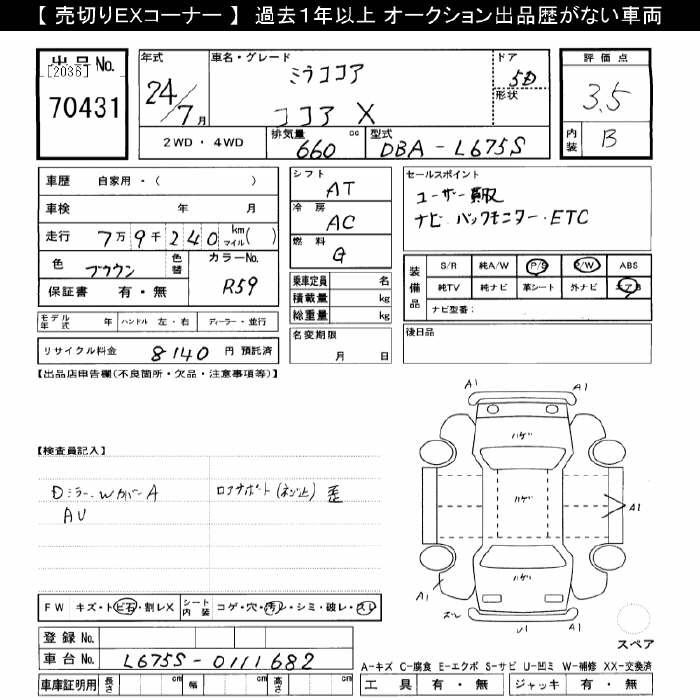 【 売切りEXコーナー 】 過去1年以上 オークション出品歴がない車両
出品No.
[2036]
70431
年式
24/7月
車名・グレード
ミラココア
ココア X
ドア
5D
形状
評価点
3.5
内装
B
2WD・4WD
排気量
660 cc
型式
DBA-L675S
車歴 自家用・( )
車検 年 月
走行 7万9千240 km マイル( )
色 ブラウン
色替
カラーNo.
R59
保証書 有・無
シフト
AT
冷房
AC
燃料
G
乗車定員 名
積載量 kg
総重量 kg
セールスポイント
ユーザー買取
ナビ バックモニター・ETC
装備品
S/R 純A/W P/S P/W ABS
純TV 純ナビ 革シート 外ナビ エアB
ナビ型番:
モデル年式 年 ハンドル 左・右 ディーラー・並行
名変期限
月 日
後日品
リサイクル料金 8140 円 預託済
【出品店申告欄(不良箇所・欠品・注意事項等)】
A1 A1
ハゲ
【検査員記入】
Dミラー、Wカバー A
AU
ロアサポート(ネジ止) 歪
ハゲ
A1
ハゲ
A1
ズレ
U1
スペア
FW キズ・ト ビ石・割レX
シート内装 コゲ・穴・汚レ・シミ・破レ・スレ
登録 No.
車台 No. L675S-0111682
車庫証明用 長さ cm 幅 cm 高さ cm
A-キズ C-腐食 E-エクボ S-サビ U-凹ミ W-補修 XX-交換済
工具 有・無 ジャッキ 有・無